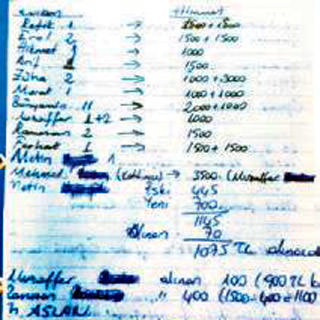 Refik 1 → 1500 + 1500
Erol 2 → 1500 + 1500
Hikmet → 1000
Arif → 1500
Züha 2 → 1000 + 3000
Murat 1 → 1000 + 1000
Bünyamin 11 → 2000 + 1000
Muzaffer 1+2 → 1000
Ramazan 2 → 1500
Ferhat 1 → 1500 + 1500
Metin 1
Mehmed → 3500 (Muzaffer
Metin Eski 445
Yeni 700
1145
Alınan 70
1075 TL alınacak
Muzaffer alınan 100 (900 TL
Ramazan " 400 (1500-400=1100
ASLAN